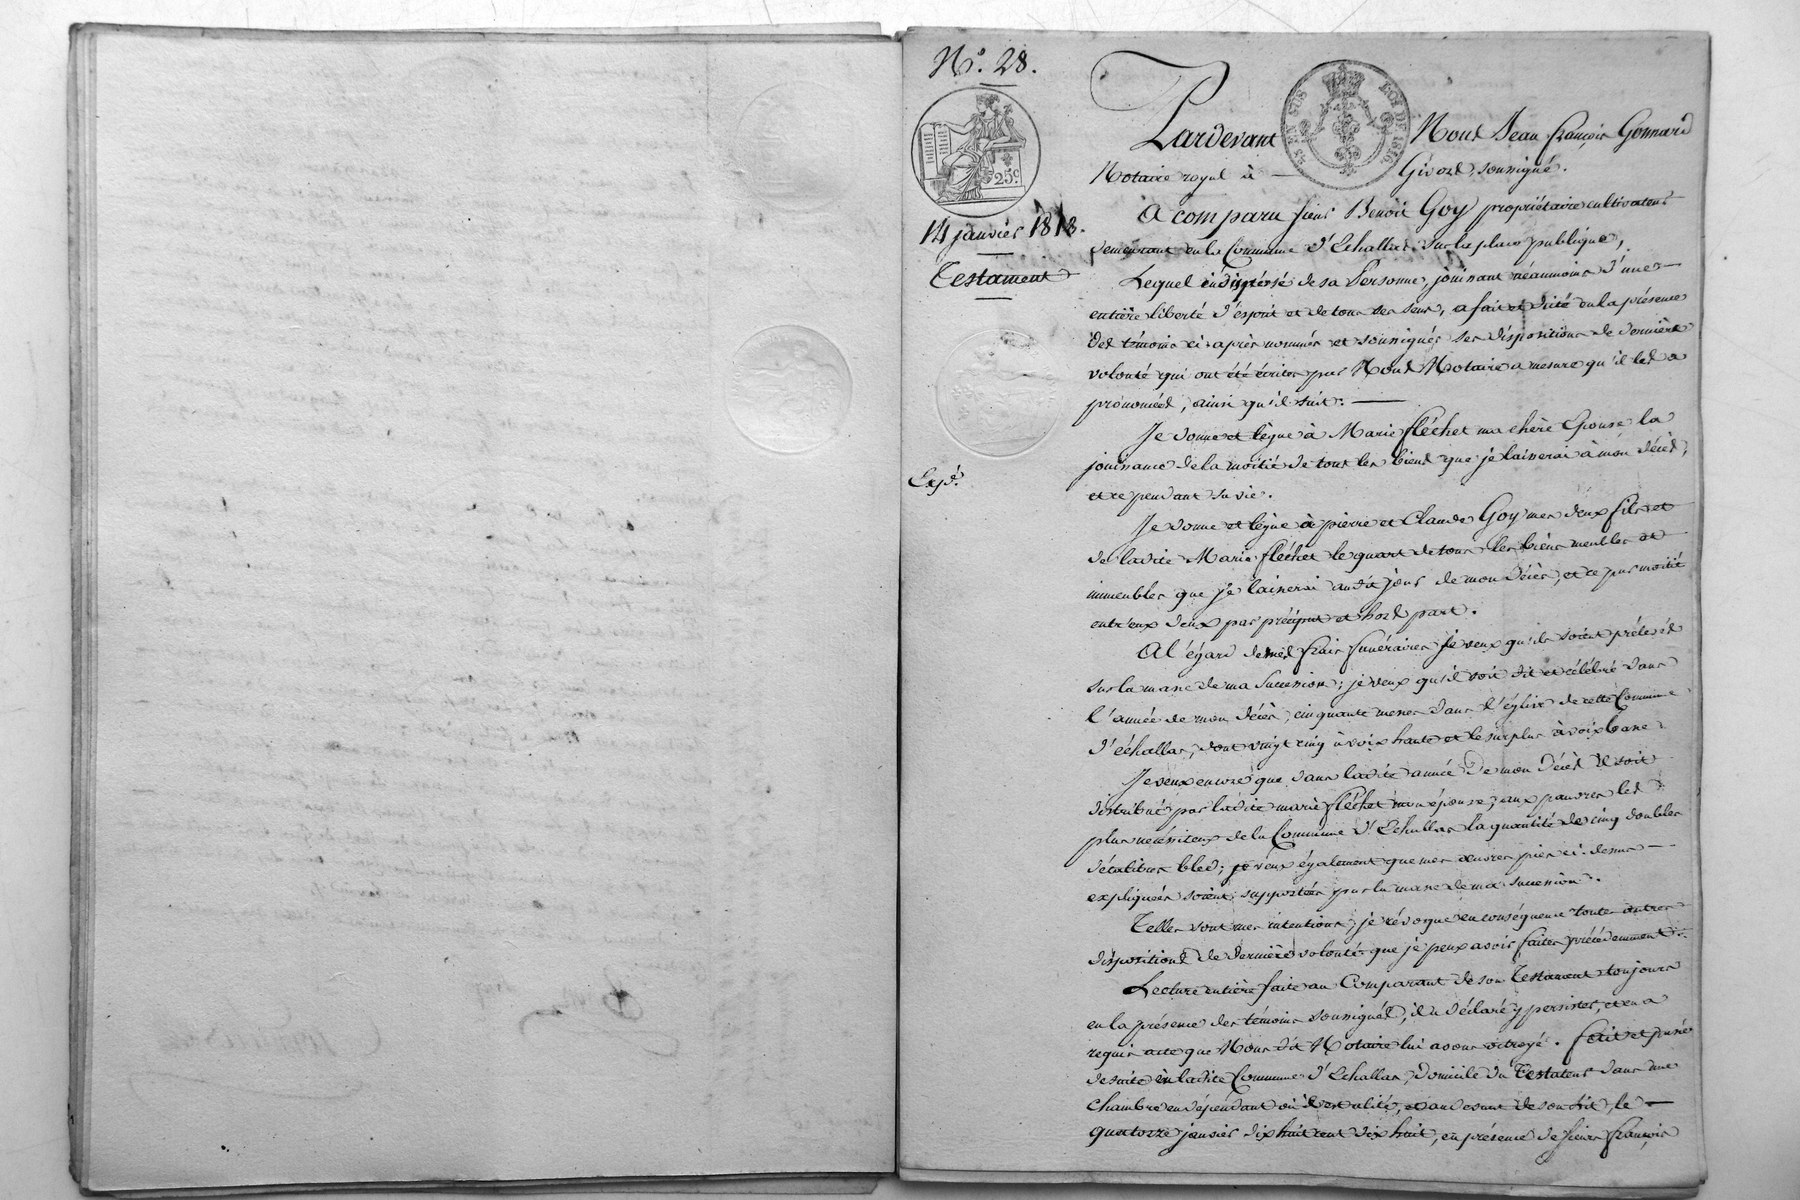 N.° 28.
25.c
14 janvier 1818.
Testament
Expé.
5 EN SUS LOI DE 1816.
Pardevant Nous Jean François Gonnard
Notaire royal à — Givors, soussigné.
A comparu sieur Benoît Goy propriétaire cultivateur
demeurant en la Commune d'Echallas sur la place publique,
Lequel indisposé de sa Personne, jouissant néanmoins d'une
entière liberté d'esprit et de tous ses sens, a fait et dicté en la présence
des témoins ci-après nommés et soussignés ses dispositions de dernière
volonté qui ont été écrites par Nous Notaire a mesure qu'il les a
prononcées, ainsi qu'il suit. —
Je donne et lègue à Marie Fléchet ma chère Epouse la
jouissance de la moitié de tous les biens que je laisserai à mon décès,
et ce pendant sa vie.
Je donne et lègue à pierre et Claude Goy mes deux fils et
de ladite Marie fléchet le quart de tous les biens meubles et
immeubles que je laisserai audit jour de mon décès, et ce par moitié
entr'eux deux par préciput et hors part.
A l'égard de mes frais funéraires je veux qu'ils soient prélevés
sur la masse de ma Succession; je veux qu'il soit dit et célébré dans
l'année de mon décès, cinquante messes dans l'église de cette Commune
d'échallas, dont vingt cinq à voix haute et le surplus à voix basse.
Je veux encore que dans ladite année de mon décès il soit
distribué par ladite marie fléchet mon épouse, aux pauvres les
plus nécessiteux de la Commune d'Echallas la quantité de cinq doubles
décalitres bled; je veux également que mes œuvres pies ci-dessus —
expliquées soient supportées par la masse de ma succession.
Telles sont mes intentions, je révoque en conséquence toutes autres
dispositions de dernière volonté que je peux avoir faites précédemment.
Lecture entière faite au Comparant de son Testament toujours
en la présence des témoins soussignés, il a déclaré y persister, et en a
requis acte que Nous dit Notaire lui avons octroyé. fait et passé
de suite en ladite Commune d'Echallas, domicile du Testateur dans une
chambre en dépendant où il est alité, et au devant de son lit, le —
quatorze janvier dix huit cent dix huit, en présence de sieurs François